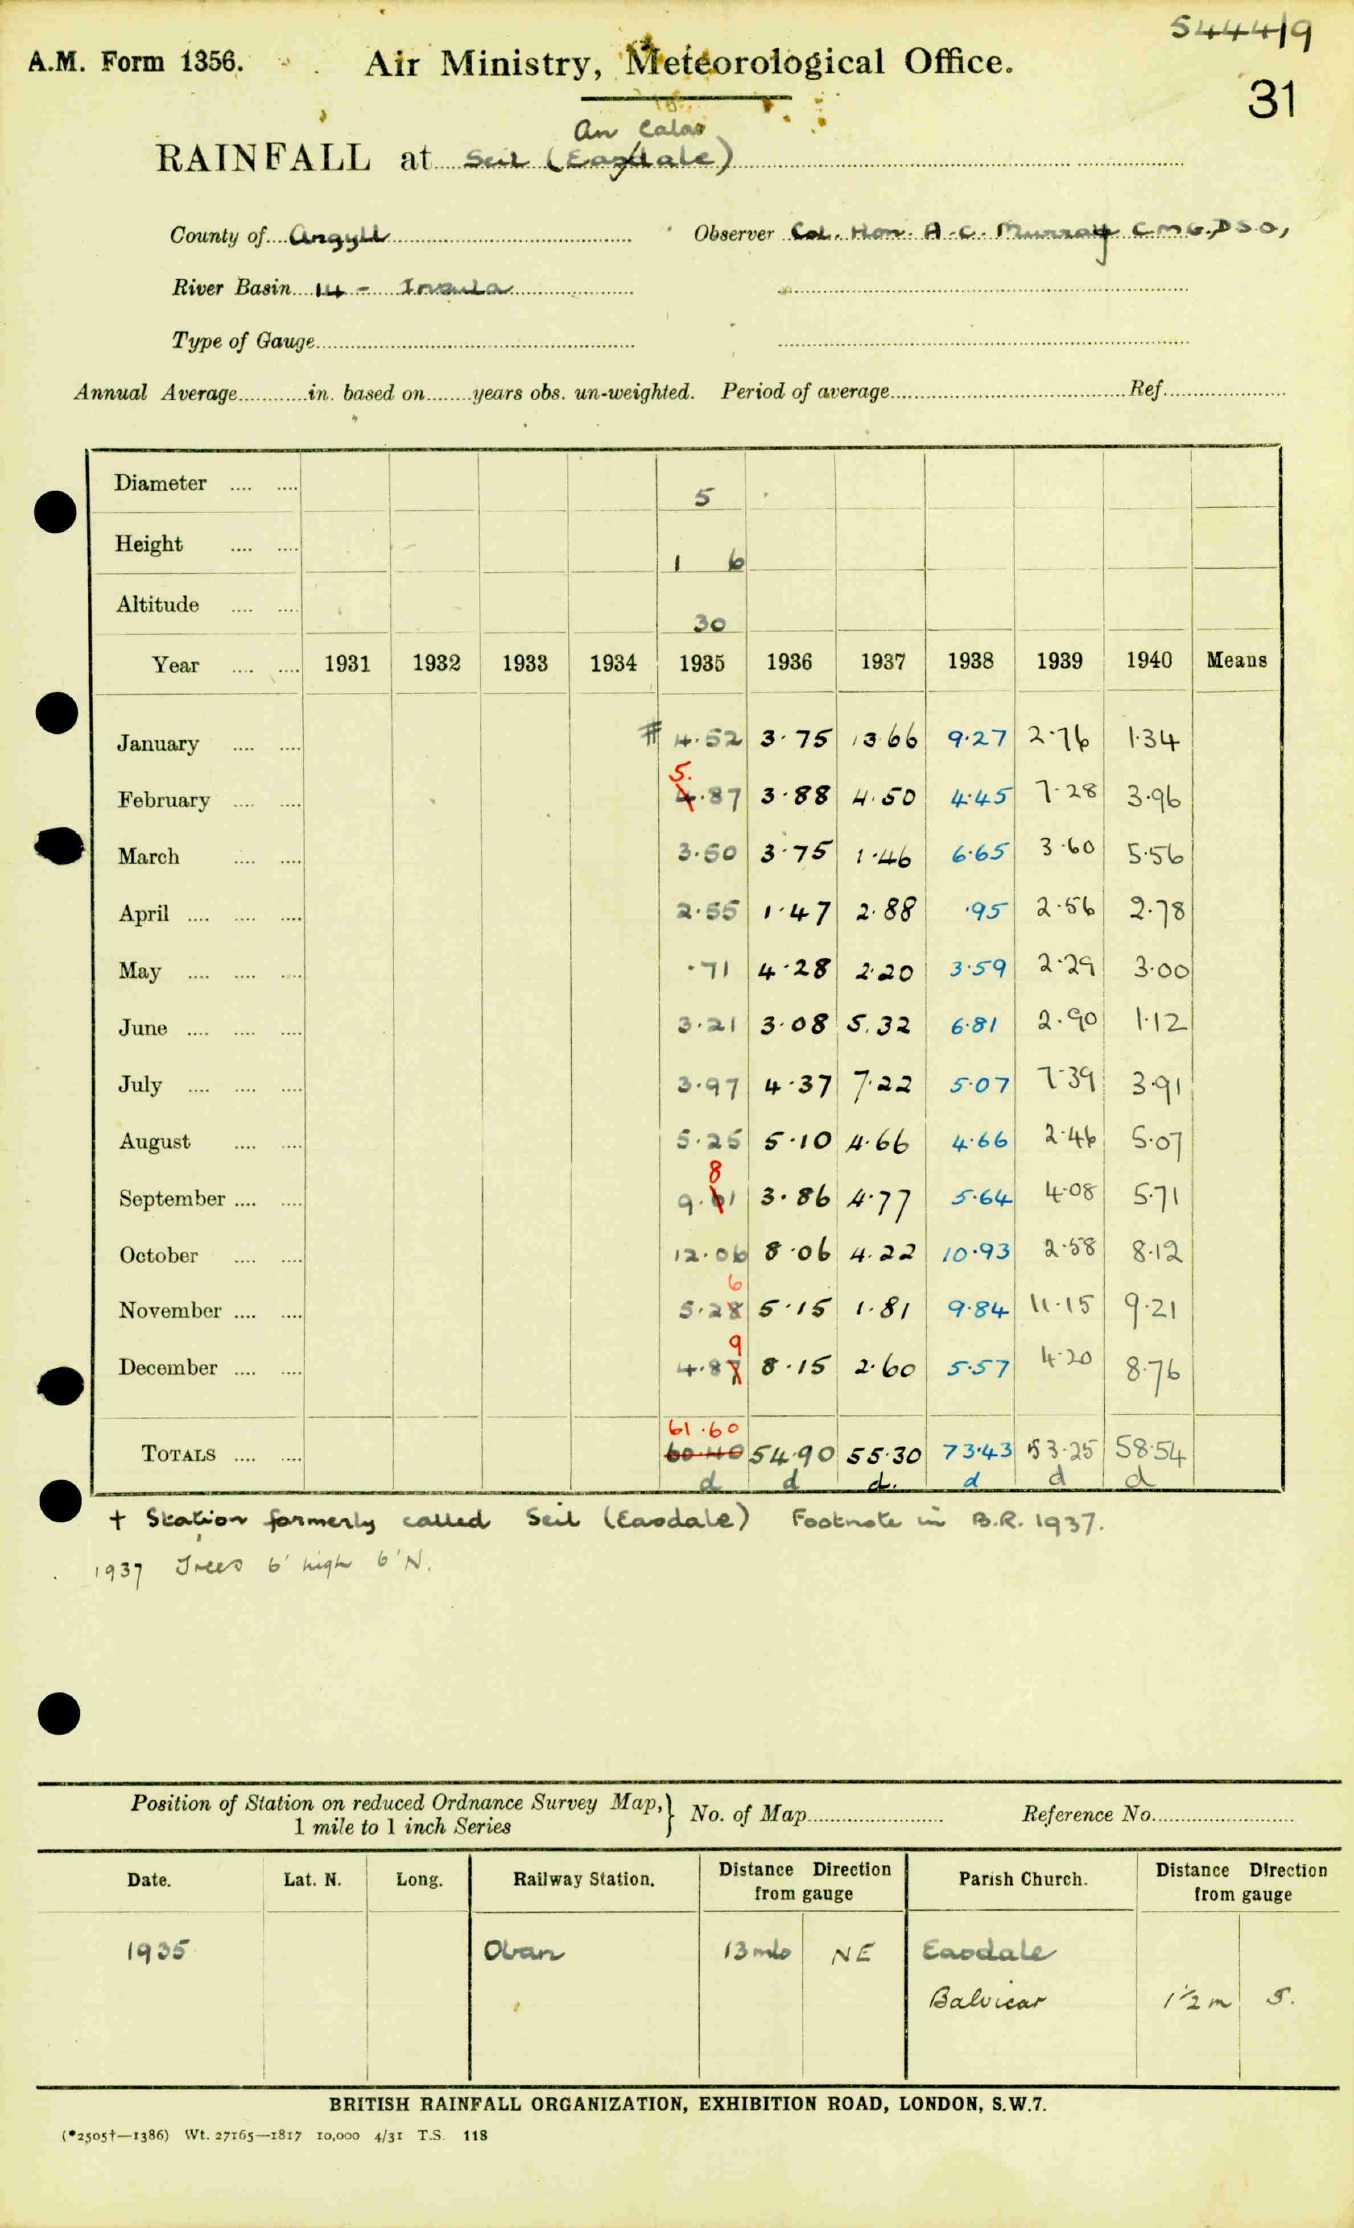 5444/9
A.M. Form 1356. Air Ministry, Meteorological Office.
31
An Cala
RAINFALL at Seil (Easdale)
County of Argyll Observer Col. Hon. A. C. Murray C M G., D S O,
River Basin 14 - Insula
Type of Gauge
Annual Average in. based on years obs. un-weighted. Period of average Ref.
Diameter 5
Height 1 6
Altitude 30
Year 1931 1932 1933 1934 1935 1936 1937 1938 1939 1940 Means
January # 4.52 3.75 13.66 9.27 2.76 1.34
5.
February 4.87 3.88 4.50 4.45 7.28 3.96
March 3.50 3.75 1.46 6.65 3.60 5.56
April 2.55 1.47 2.88 .95 2.56 2.78
May .71 4.28 2.20 3.59 2.29 3.00
June 3.21 3.08 5.32 6.81 2.90 1.12
July 3.97 4.37 7.22 5.07 7.39 3.91
August 5.25 5.10 4.66 4.66 2.46 5.07
8
September 9.61 3.86 4.77 5.64 4.08 5.71
October 12.06 8.06 4.22 10.93 2.58 8.12
6
November 5.28 5.15 1.81 9.84 11.15 9.21
9
December 4.87 8.15 2.60 5.57 4.20 8.76
61.60
TOTALS 60.40 54.90 55.30 73.43 53.25 58.54
d d d. d d d
† Station formerly called Seil (Easdale) Footnote in B.R. 1937.
1937 Trees 6' high 6' N.
Position of Station on reduced Ordnance Survey Map, } No. of Map Reference No.
1 mile to 1 inch Series
Date. Lat. N. Long. Railway Station. Distance Direction from gauge Parish Church. Distance Direction from gauge
1935 Oban 13 mls NE Easdale
Balvicar 1 1/2 m S.
BRITISH RAINFALL ORGANIZATION, EXHIBITION ROAD, LONDON, S.W.7.
(*2505†—1386) Wt. 27165—1817 10,000 4/31 T.S. 118